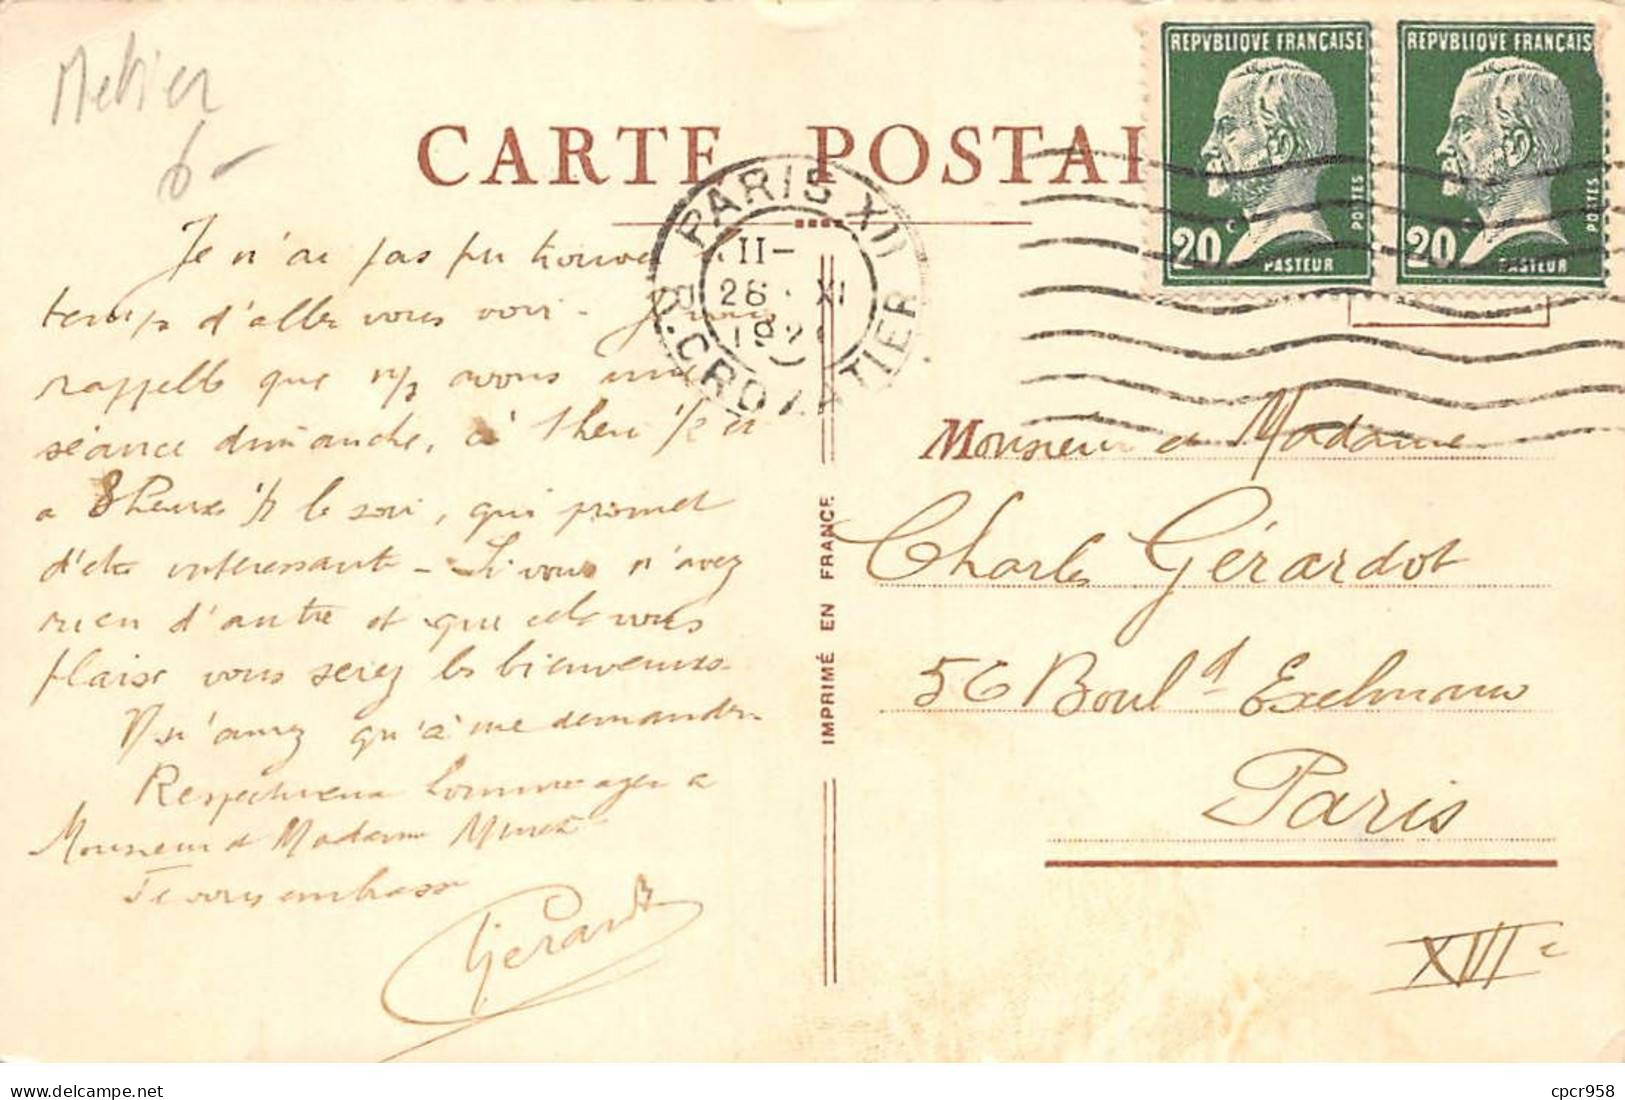 Metier
6-
CARTE POSTAL
REPVBLIQVE FRANÇAISE
20 c
PASTEUR
POSTES
REPVBLIQVE FRANÇAIS
20
PASTEUR
POSTES
PARIS XII
II-
28 XI
192
R. CROZATIER
Je n'ai pas pu trouver
temps d'aller vous voir - Je vous
rappelle que n/s avons une
séance dimanche, à 1 heu 1/2 et
a 8 heures 1/2 le soir, qui promet
d'etre interessante - Si vous n'avez
rien d'autre et que cela vous
plaise vous serez les bienvenus
V n'aurez qu'à me demander
Respectueux hommages a
Monsieur et Madame
Je vous embrasse
Gérard
IMPRIMÉ EN FRANCE
Monsieur et Madame
Charles Gérardot
56 Boul.d Exelmans
Paris
XVIe
cpcr958